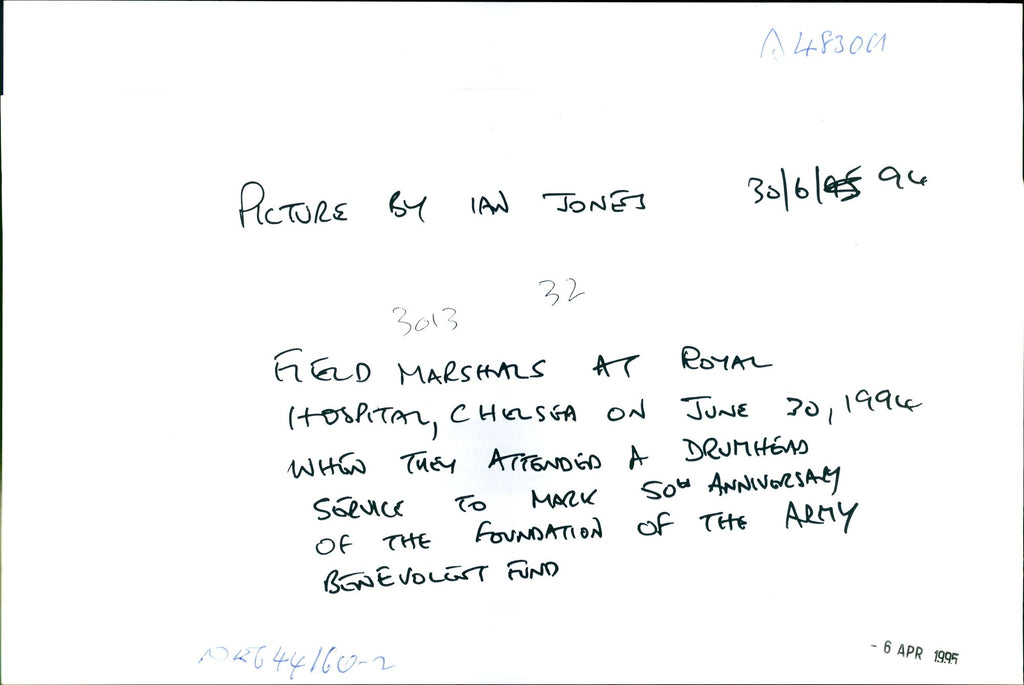 A48309
PICTURE BY IAN JONES 30/6/95 94
32
3013
FIELD MARSHALS AT ROYAL
HOSPITAL, CHELSEA ON JUNE 30, 1994
WHEN THEY ATTENDED A DRUMHEAD
SERVICE TO MARK 50th ANNIVERSARY
OF THE FOUNDATION OF THE ARMY
BENEVOLENT FUND
- 6 APR 1995